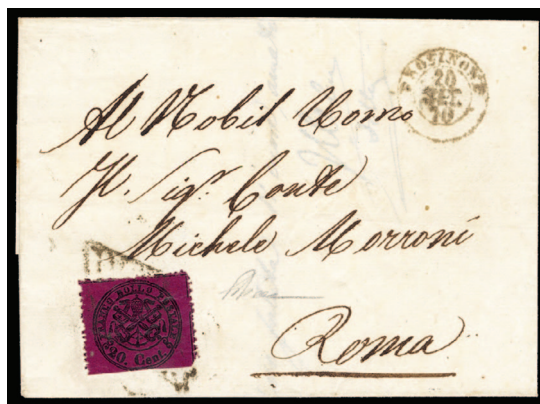 FROSINONE
20
70
Al Nobil Uomo
Il Sigr. Conte
Michele Morroni
FRANCO BOLLO POSTALE
20 Cent
Roma